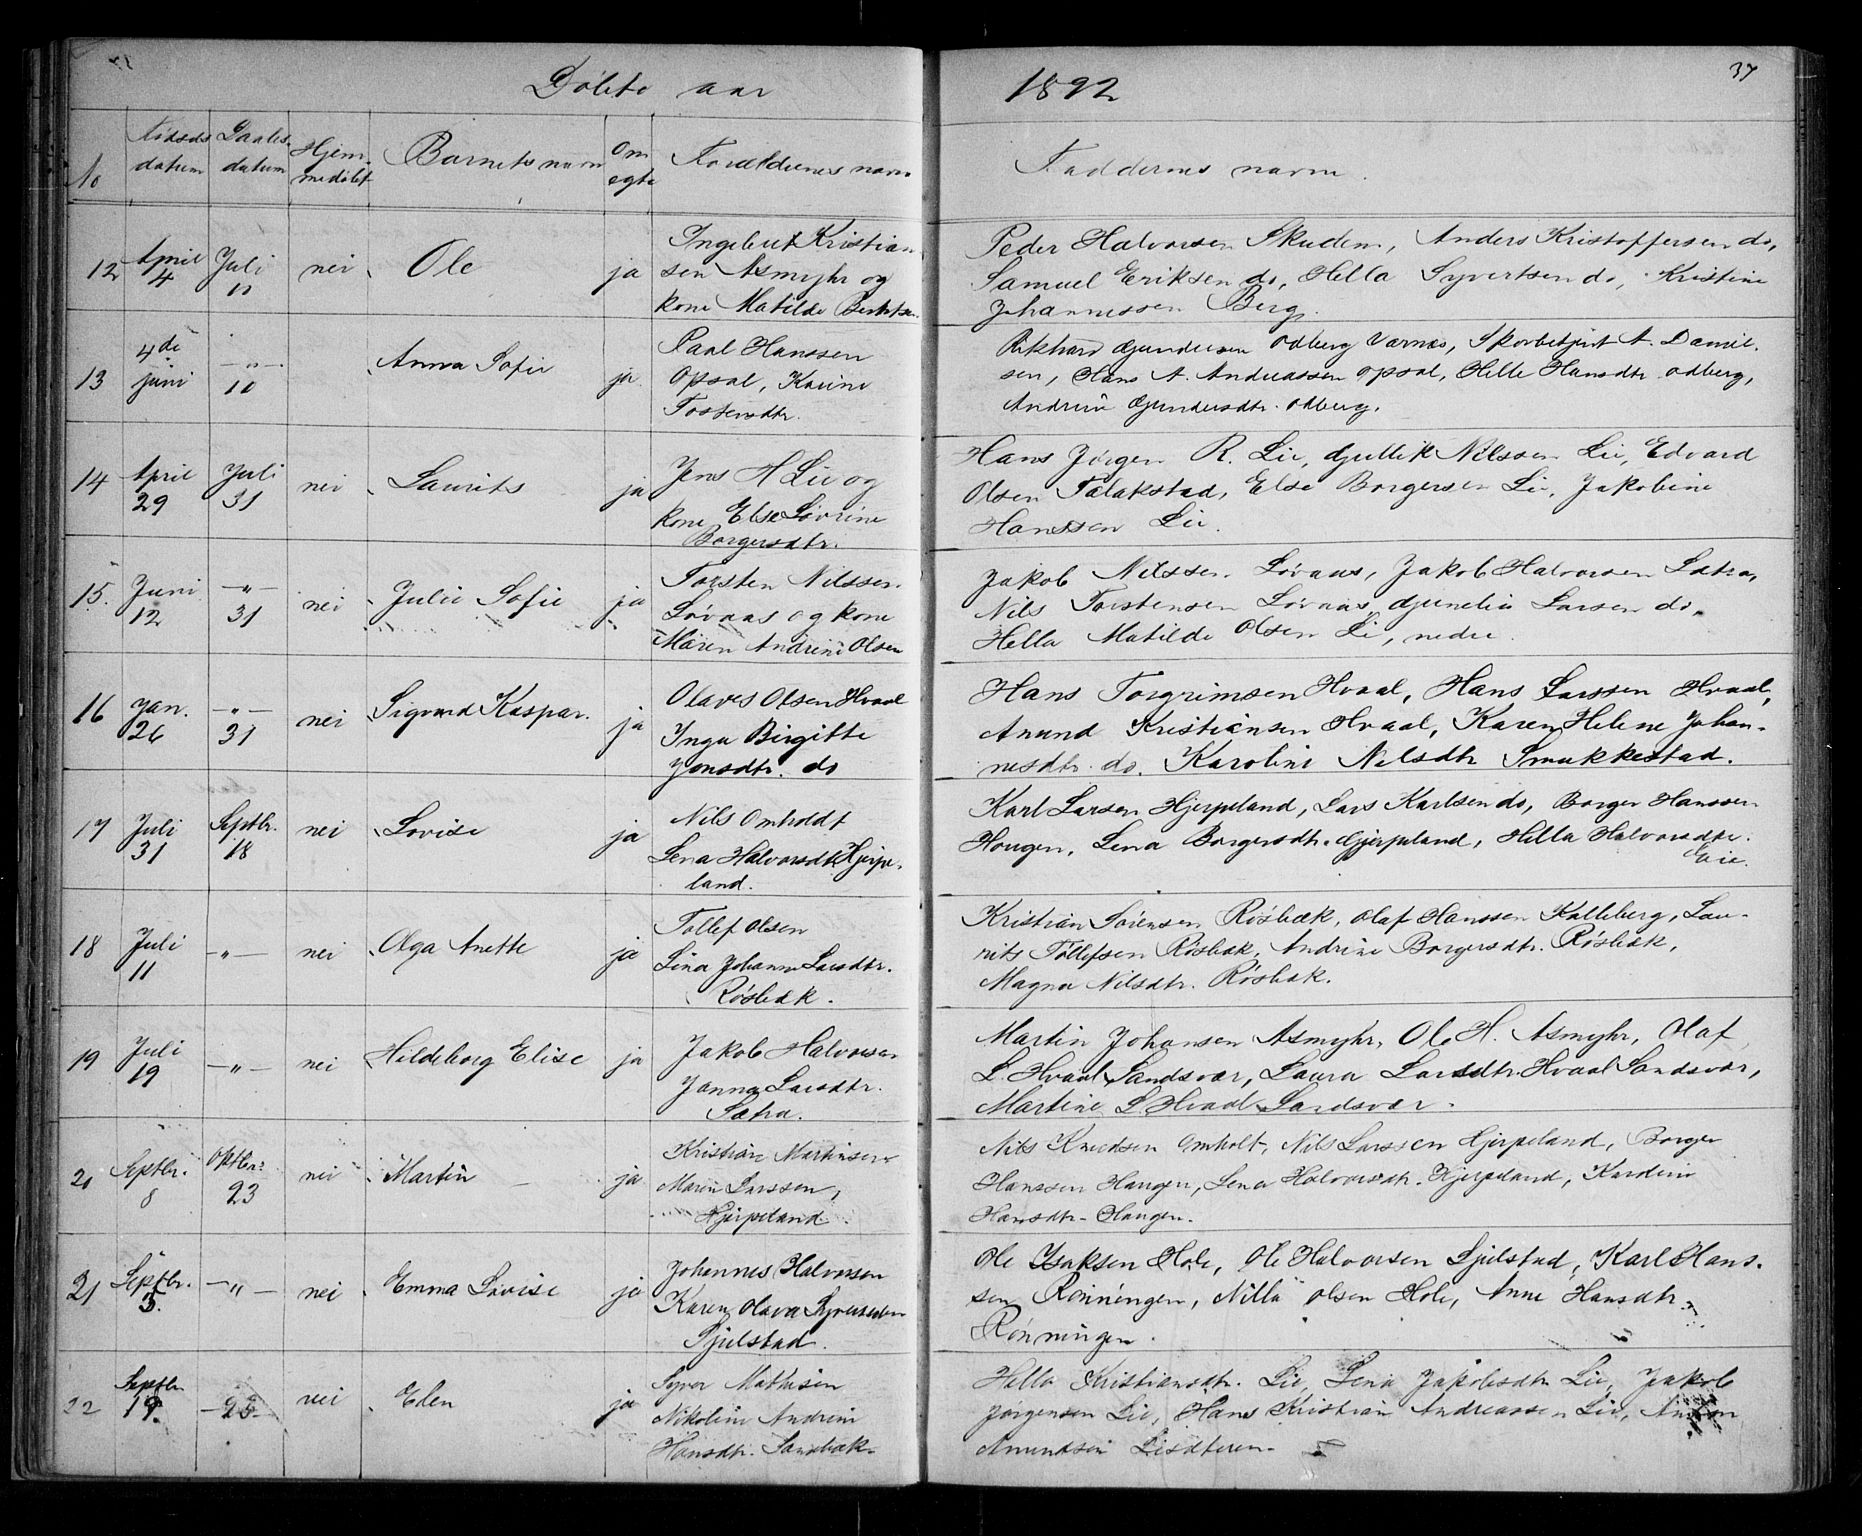 Döbte aar 1892
37
No Födsels datum Daabs datum Hjem medøbt Barnets navn Om egte Forældrenes navn Faddernes navn.
12 April 4 Juli 10 nei Ole ja
Ingebret Kristian
sen Asmyhr og
kone Matilde
Peder Halvorsen Skuden, Anders Kristoffersen do,
Samuel Eriksen do, Hella Syvertsen do, Kristine
Johannessen Berg.
13 4de juni -"- 10 Anna Sofie ja
Paal Hanssen
Opsal, Karine
Tostensdtr.
Rikhard Gundersen Odberg Varnæs, Skarbetjent A. Daniel-
sen, Hans A. Andreassen Opsal, Helle Hansdtr Odberg,
Andrine Gundersdtr. Odberg.
14 April 29 Juli 31 nei Laurits ja
Jens H Lie og
kone Else Lovrine
Borgersdtr.
Hans Jørgen R. Lie, Gullik Nilssen Lie, Edvard
Olsen Talakstad, Else Borgersen Lie, Jakobine
Hanssen Lie.
15. Juni 12 -"- 31 nei Julie Sofie ja
Torsten Nilssen
Løvaas og kone
Maren Andrine Olsen
Jakob Nilssen Løvaas, Jakob Halvorsen Sætra,
Nils Torstensen Løvaas, Gunelia Larsen do.
Hella Matilde Olsen Lie, nedre.
16 Jan. 26 -"- 31 nei Sigvard Kaspar. ja
Olaves Olsen Hvaal
Inga Birgitte
Jonsdtr. do
Hans Torgrimsen Hvaal, Hans Larssen Hvaal,
Anund Kristiansen Hvaal, Karen Helene Johan-
nesdtr do. Karoline Nilsdtr Smukkestad.
17 Juli 31 Septbr. 18 nei Lovise ja
Nils Omholdt
Lena Halvorsdtr Hjerpe-
land.
Karl Larsen Hjerpeland, Lars Karlsen do, Borger Hanssen
Hougen, Lena Borgersdtr. Hjerpeland, Hella Halvorsdtr.
Evie.
18 Juli 11 -"- nei Olga Anette ja
Tollef Olsen
Lina Johanne Larsdtr.
Røsbæk.
Kristian Sørensen Røsbæk, Olaf Hanssen Kalleberg, Lau-
rits Tollefsen Røsbæk, Andrine Borgersdtr. Røsbæk,
Magna Nilsdtr. Røsbæk.
19 Juli 19 -"- nei Hildeborg Elise ja
Jakob Halvorsen
Janna Larsdtr.
Sætra.
Martin Johansen Asmyhr, Ole H. Asmyhr, Olaf
L. Hvaal Sandsvær, Laura Larsdtr. Hvaal Sandsvær,
Martine L Hvaal Sandsvær.
20 Septbr. 8 Oktbr. 23 nei Martin ja
Kristian Martinsen
Maren Larssen,
Hjerpeland.
Nils Knudsen Omholt, Nils Larssen Hjerpeland, Borger
Hanssen Haugen, Lena Halvorsdtr. Hjerpeland, Karoline
Hansdtr. Haugen.
21 Septbr. 3. -"- nei Emma Lovise ja
Johannes Halvorsen
Karen Olava Syversen
Sjulstad.
Ole Isaksen Hole, Ole Halvorsen Sjulstad, Karl Hans-
sen Rønningen, Nilla Olsen Hole, Anne Hansdtr
Rønningen.
22 Septbr 19. -25- nei Elen ja
Syver Mathisen
Nikoline Andrine
Hansdtr. Sandbæk.
Hella Kristiansdtr. Lie, Lena Jakobsdtr Lie, Jakob
Jørgensen Lie, Hans Kristian Andreassen Lie, Anton
Amundsen